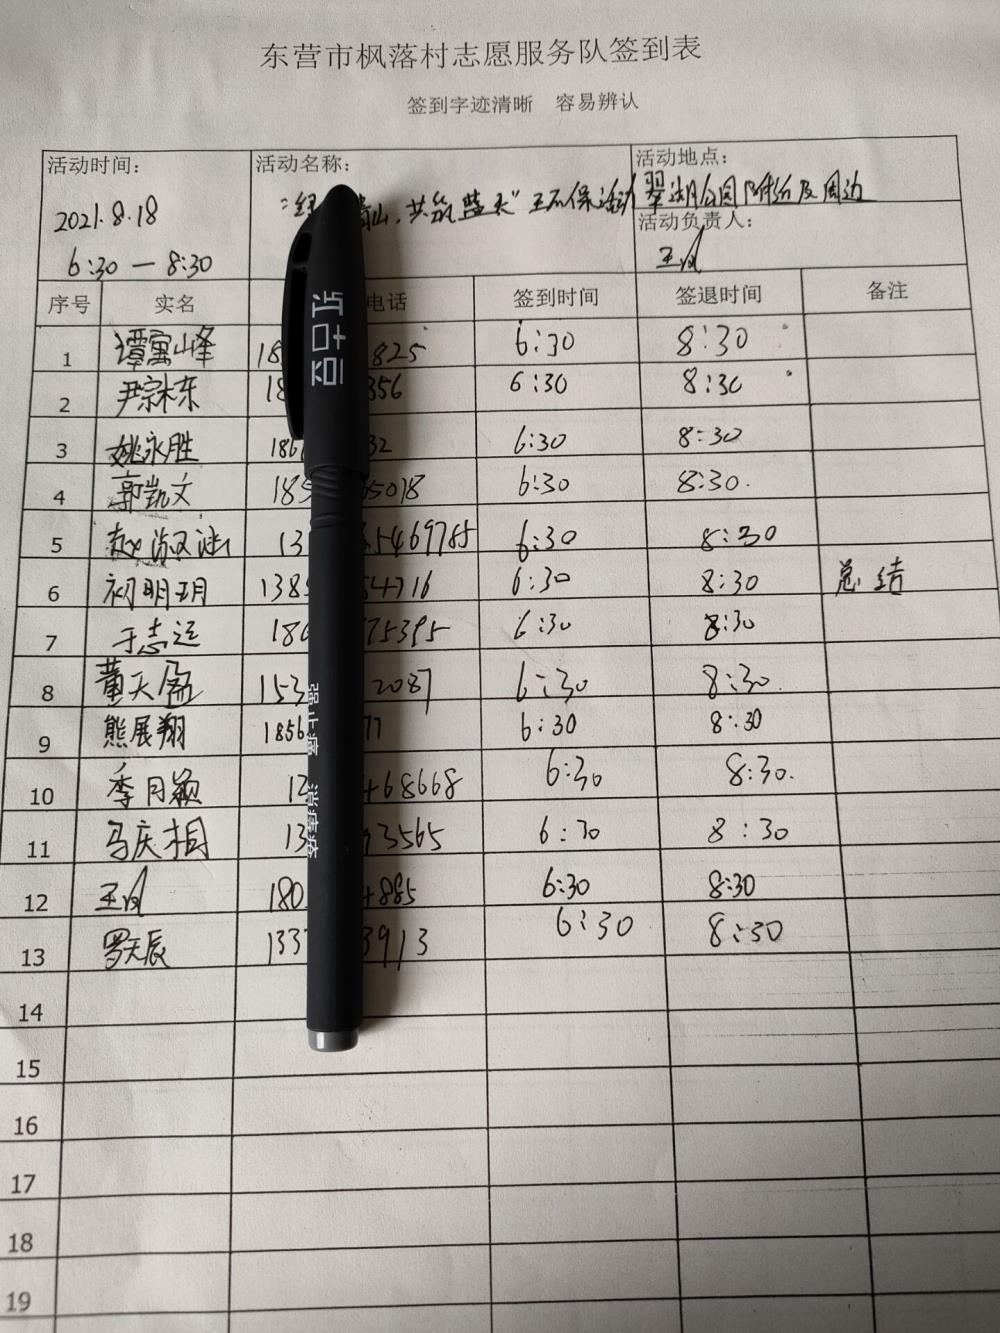 东营市枫落村志愿服务队签到表
签到字迹清晰 容易辨认
活动时间: 活动名称: 活动地点:
2021.8.18 翠湖公园附近及周边
6:30 — 8:30 活动负责人:
序号 实名 电话 签到时间 签退时间 备注
1 山峰 18 825 6:30 8:30
2 尹宗东 18 356 6:30 8:30
3 姚永胜 186 32 6:30 8:30
4 郭凯文 185 5018 6:30 8:30.
5 赵淑 13 5469785 6:30 8:30
6 初明玥 138 54716 6:30 8:30 总结
7 于志运 180 75395 6:30 8:30
8 董天盈 153 2087 6:30 8:30.
9 熊展翔 1856 77 6:30 8:30
10 季月颖 468668 6:30 8:30.
11 马庆相 13 3565 6:30 8:30
12 王 180 4885 6:30 8:30
13 罗天辰 133 3913 6:30 8:30
14
15
16
17
18
19
强止痒 消痔疮